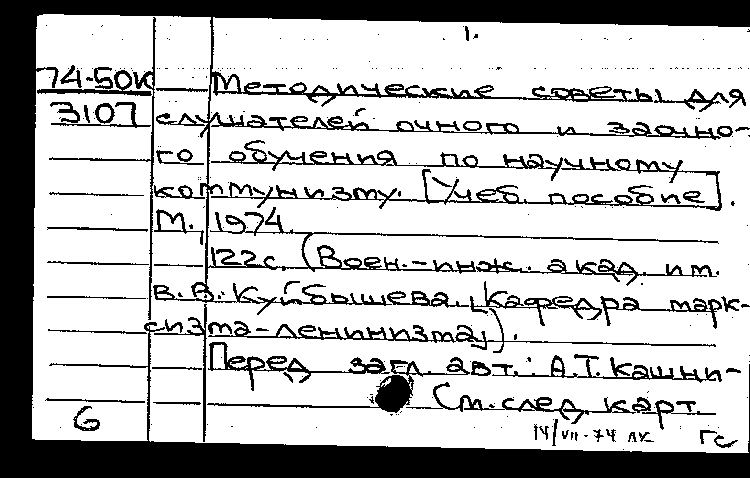 1.
74-50К Методические советы для
3107 слушателей очного и заочно-
го обучения по научному
коммунизму. [Учеб. пособие].
М., 1974.
122с. (Воен.-инж. акад. им.
В.В. Куйбышева. [Кафедра марк-
сизма-ленинизма]).
Перед загл. авт.: А.Т. Кашни-
См. след. карт.
6 14/VII-74 лк гс